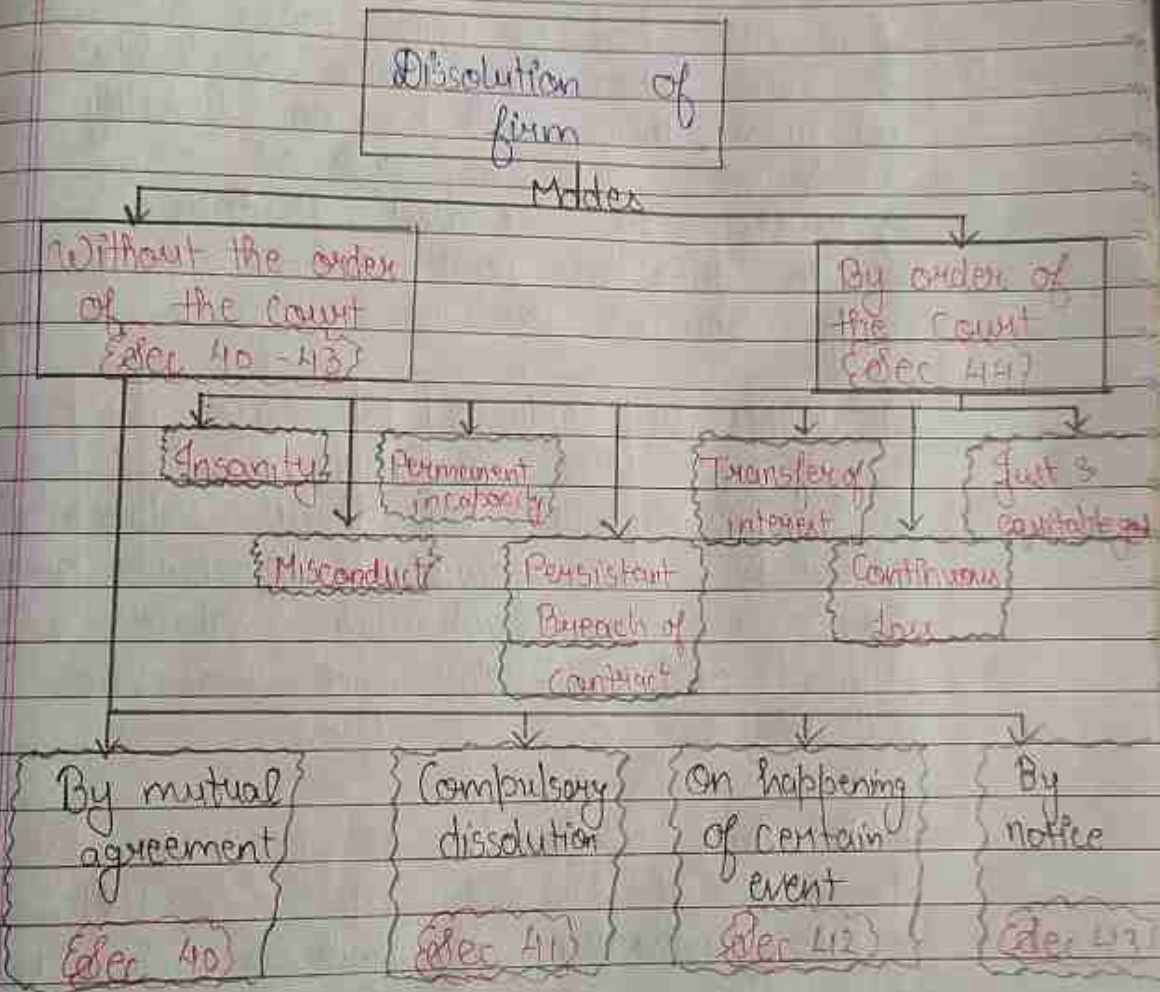 Dissolution of
firm
Modes
Without the order
of the Court
{Sec 40-43}
By order of
the Court
{Sec 44}
Insanity
Permanent
incapacity
Transfer of
interest
Just &
equitable
Misconduct
Persistant
Breach of
contract
Continuous
Loss
By mutual
agreement
{Sec 40}
Compulsory
dissolution
{Sec 41}
On happening
of certain
event
{Sec 42}
By
notice
{Sec 43}